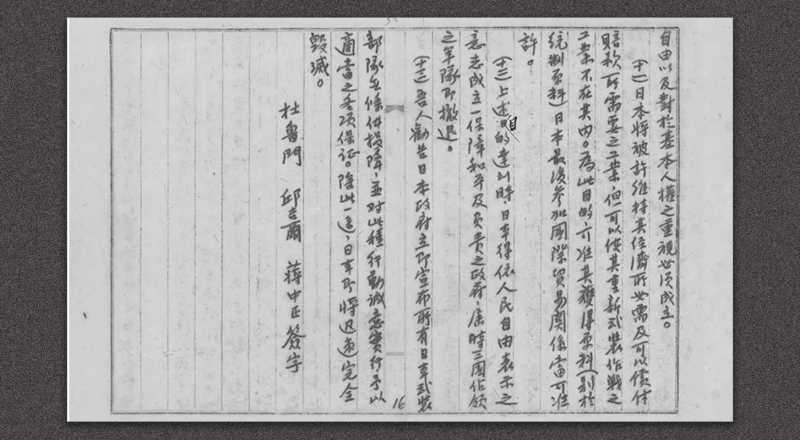 自由以及對於基本人權之重視必須成立。
(十一)日本將被許維持其經濟所必需及可以償付
賠款所需要之工業,但可以使其重新武裝作戰之
工業不在其內。為此目的,亦准其獲得原料(別於
統制原料)日本最後參加國際貿易關係當可准
許。
(十二)上述目的達到時,日本得依人民自由表示之
意志成立一保障和平及負責之政府,屆時三國佔領
之軍隊即撤退。
(十三)吾人勸告日本政府立即宣布所有日本武裝
部隊無條件投降,並對此種行動誠意實行予以
適當之各項保證。除此一途,日本即將迅速完全
毀滅。
杜魯門 邱吉爾 蔣中正 簽字
16